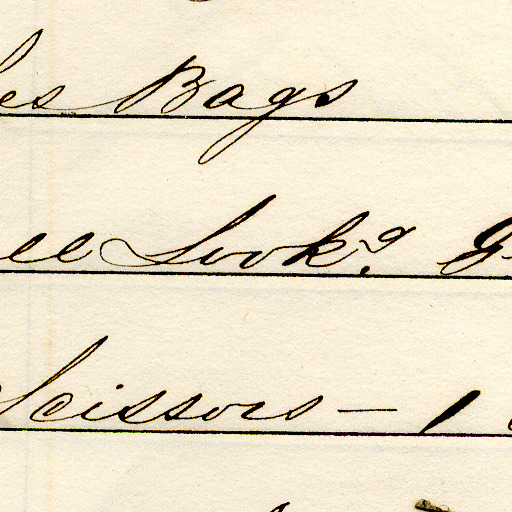 es Bags
ll Look.g G
Scissors — 1